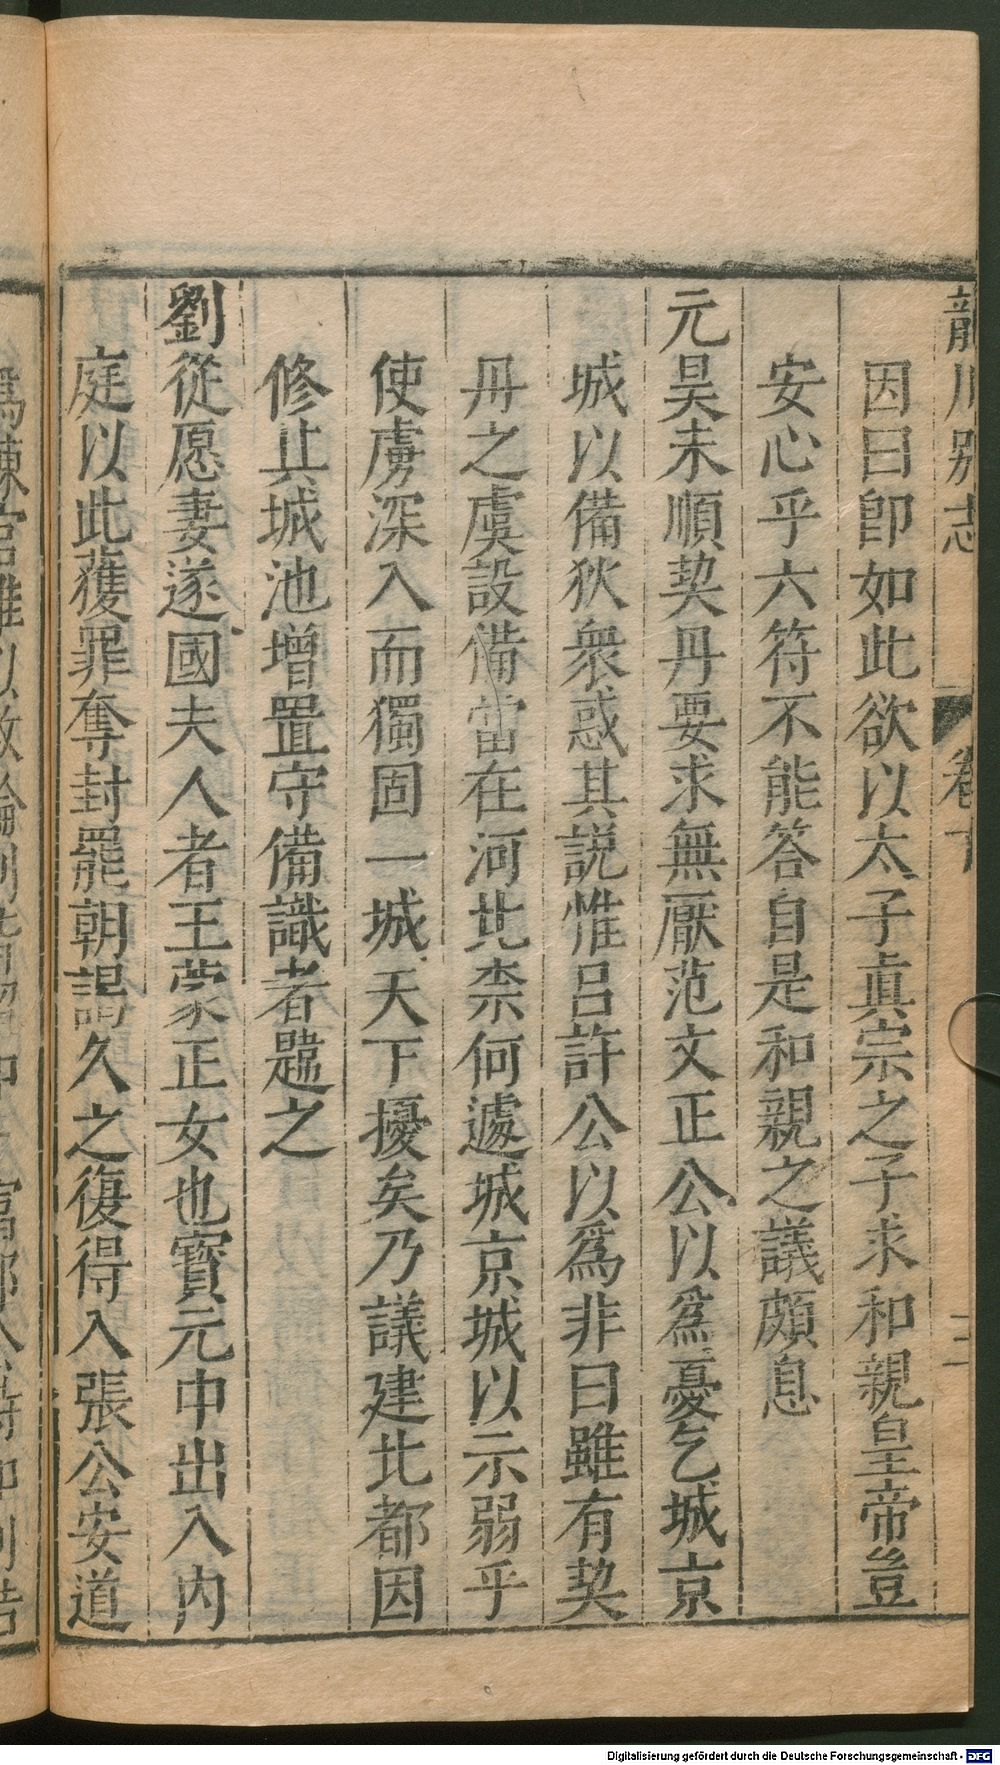 龍川別志
卷下
二
因曰卽如此欲以太子眞宗之子求和親皇帝豈
安心乎六符不能答自是和親之議頗息
元昊未順契丹要求無厭范文正公以爲憂乞城京
城以備狄衆惑其説惟呂許公以爲非曰雖有契
丹之虞設備當在河北柰何遽城京城以示弱乎
使虜深入而獨固一城天下擾矣乃議建北都因
修其城池增置守備識者韙之
劉從愿妻遂國夫人者王蒙正女也寳元中出入內
庭以此獲罪奪封罷朝謁久之復得入張公安道
Digitalisierung gefördert durch die Deutsche Forschungsgemeinschaft - DFG